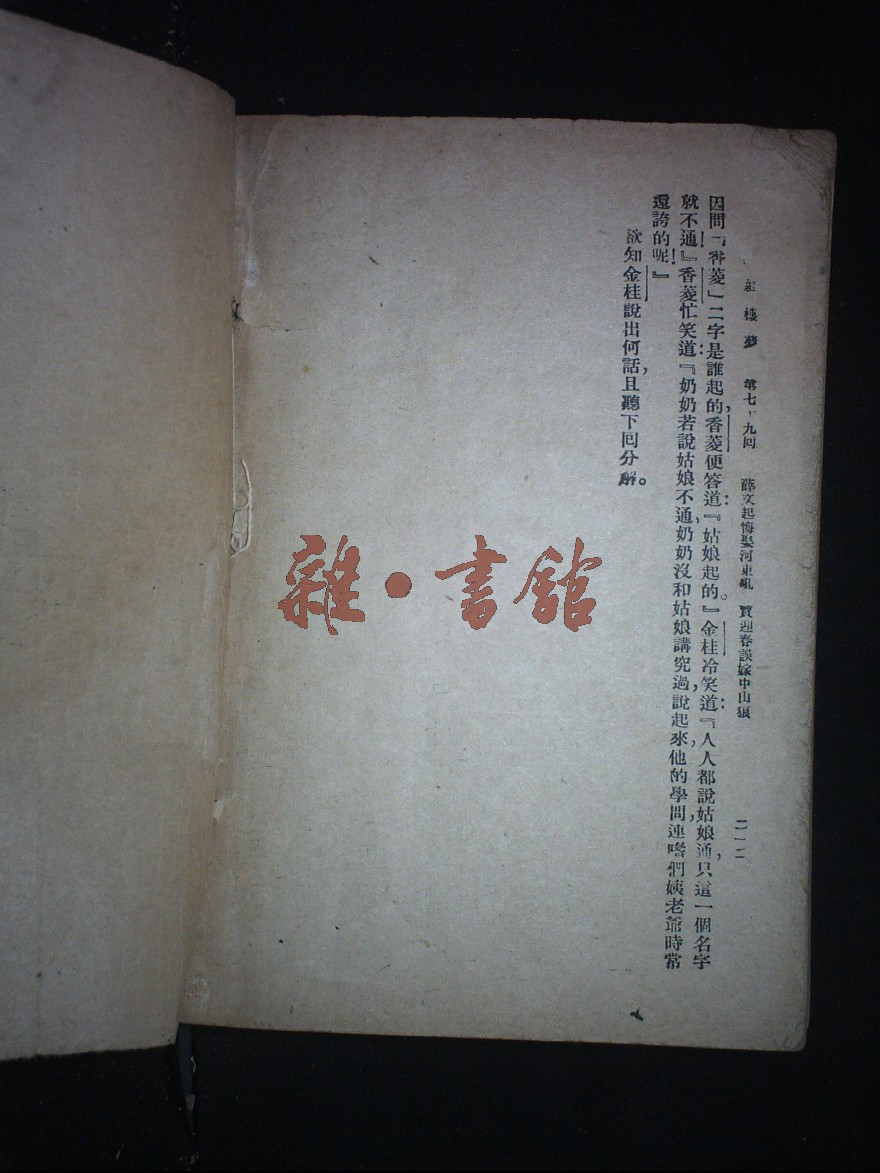 紅樓夢 第七十九回 薛文起悔娶河東吼 賈迎春誤嫁中山狼 二一二
因問『「香菱」二字是誰起的』香菱便答道:『姑娘起的。』金桂冷笑道:『人人都說姑娘通,只這一個名字
就不通!』香菱忙笑道:『奶奶若說姑娘不通,奶奶沒和姑娘講究過,說起來,他的學問,連嗒們姨老爺時常
還誇的呢!』
欲知金桂說出何話,且聽下回分解。
雜·書館